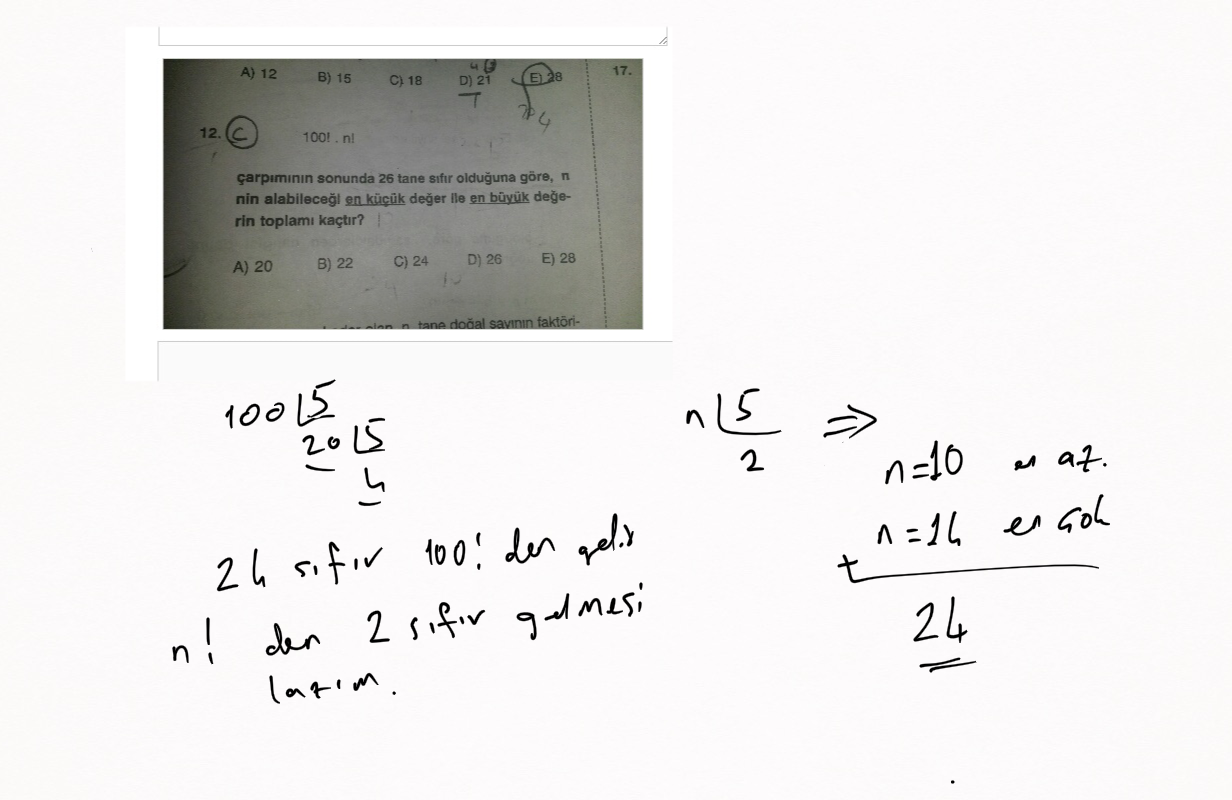 A) 12 B) 15 C) 18 D) 21 E) 28
17.
12. C 100! . n!
çarpımının sonunda 26 tane sıfır olduğuna göre, n
nin alabileceği en küçük değer ile en büyük değe-
rin toplamı kaçtır?
A) 20 B) 22 C) 24 D) 26 E) 28
olan n tane doğal sayının faktöri-
100 5
20 5
4
24 sıfır 100! den gelir
n! den 2 sıfır gelmesi
lazım.
n 5 ⇒
2
n=10 en az.
n=14 en çok
+
24